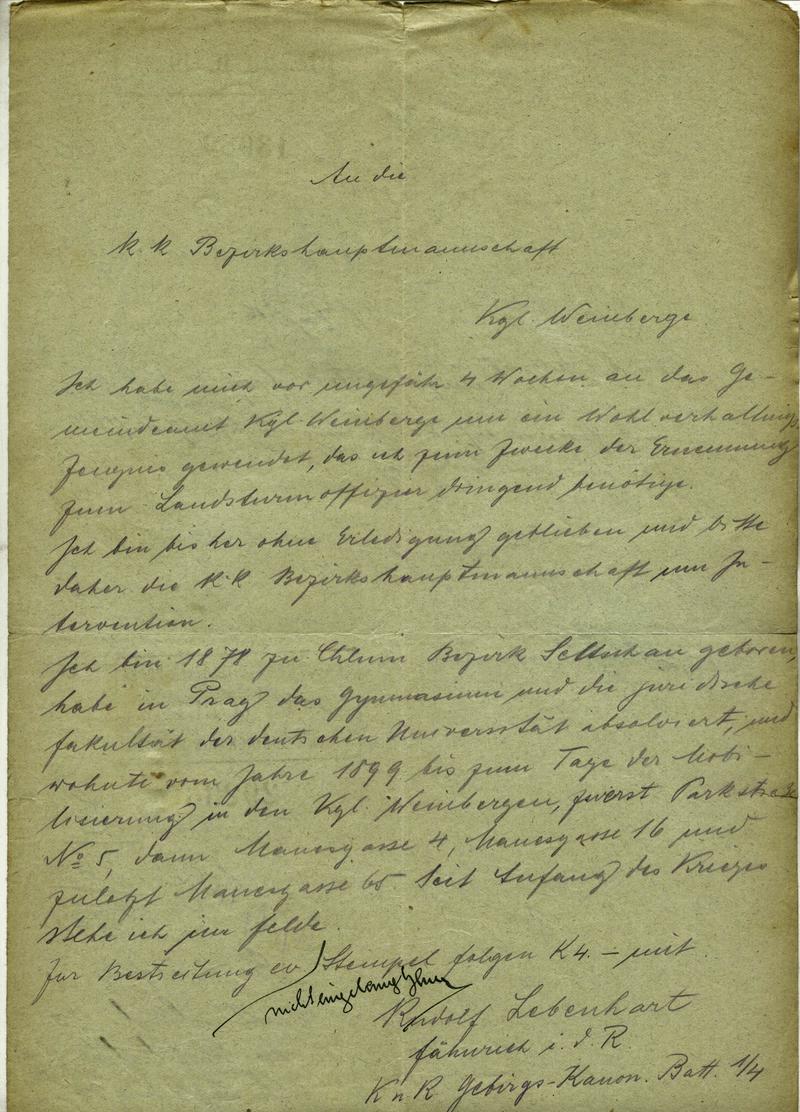 An die
k. k Bezirkshauptmannschaft
Kgl. Weinberge
Ich habe mich vor ungefähr 4 Wochen an das Ge-
meindeamt Kgl Weinberge um ein Wohlverhaltungs
Zeugnis gewendet, das ich zum Zwecke der Ernennung
zum Landsturmoffizier dringend benötige.
Ich bin bisher ohne Erledigung geblieben und bitte
daher die k. k Bezirkshauptmannschaft um In-
tervention.
Ich bin 1878 zu Chlum Bezirk Seltschan geboren,
habe in Prag das Gymnasium und die juridische
Fakultät der deutschen Universität absolviert, und
wohnte vom Jahre 1899 bis zum Tage der Mobi-
lisierung in den Kgl. Weinbergen, zuerst Parkstrasse
No 5, dann Manesgasse 4, Manesgasse 16 und
zuletzt Manesgasse 65 Seit Anfang des Krieges
stehe ich im Felde.
Zur Bestreitung ev Stempel folgen K 4. – mit
nicht eingelangt
Rudolf Lebenhart
Fähnrich i. d. R.
K u K Gebirgs-Kanon. Batt. 1/4